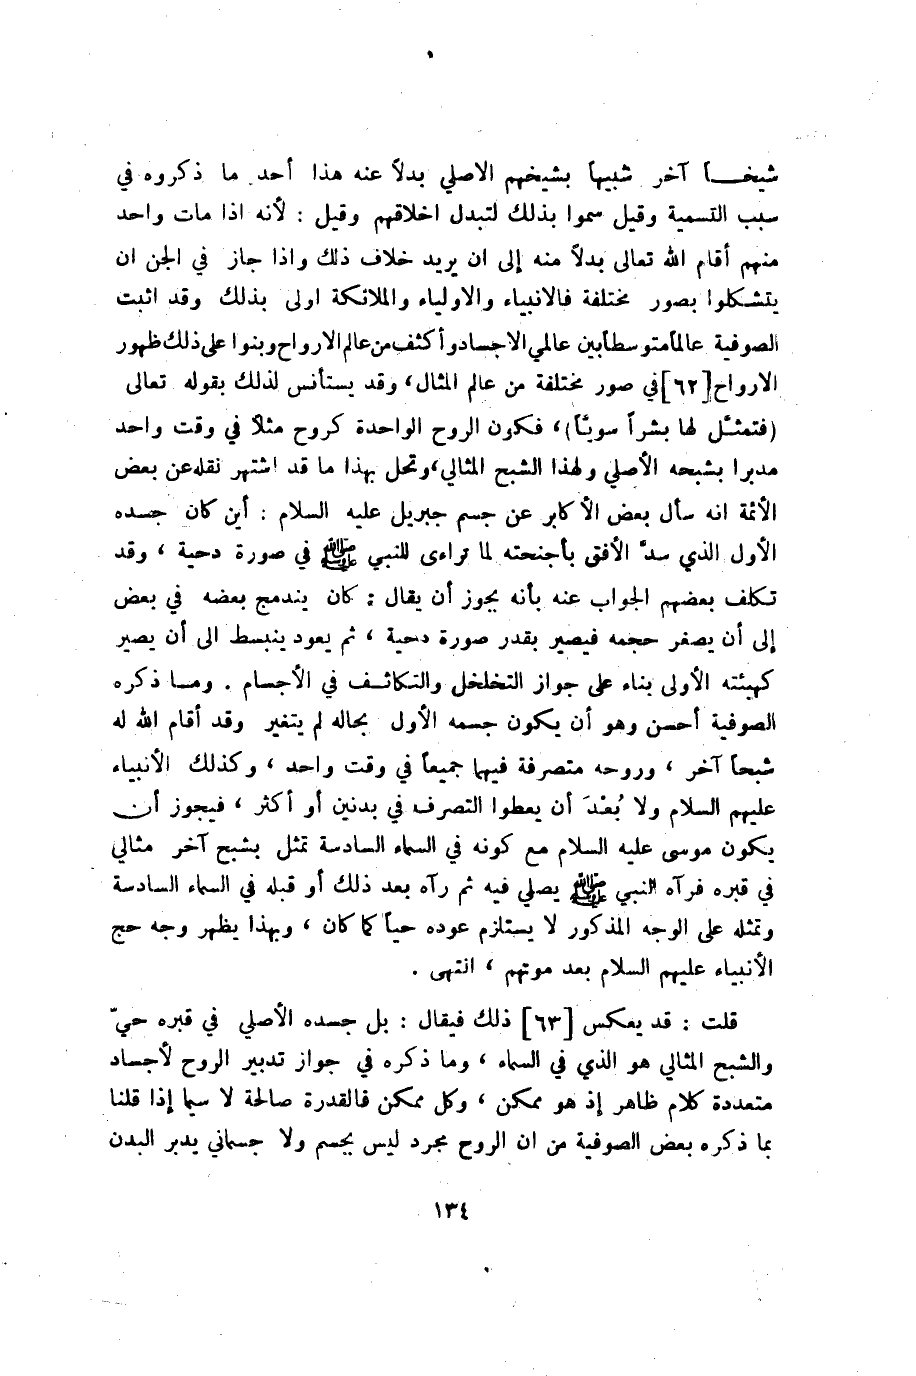 شيخـــاً آخر شبيهاً بشيخهم الاصلي بدلاً عنه هذا أحد ما ذكروه في
سبب التسمية وقيل سموا بذلك لتبدل اخلاقهم وقيل : لأنه اذا مات واحد
منهم أقام الله تعالى بدلاً منه إلى ان يريد خلاف ذلك واذا جاز في الجن ان
يتشكلوا بصور مختلفة فالانبياء والاولياء والملائكة اولى بذلك وقد اثبت
الصوفية عالماً متوسطاً بين عالمي الاجساد وأكثف من عالم الارواح وبنوا على ذلك ظهور
الارواح [٦٢] في صور مختلفة من عالم المثال، وقد يستأنس لذلك بقوله تعالى
(فتمثل لها بشراً سويّاً)، فكون الروح الواحدة كروح مثلاً في وقت واحد
مدبرا بشبحه الأصلي ولهذا الشبح المثالي، وتحل بهذا ما قد اشتهر نقله عن بعض
الأئمة انه سأل بعض الأكابر عن جسم جبريل عليه السلام : أين كان جسده
الأول الذي سدّ الأفق بأجنحته لما تراءى للنبي ﷺ في صورة دحية ، وقد
تكلف بعضهم الجواب عنه بأنه يجوز أن يقال : كان يندمج بعضه في بعض
إلى أن يصغر حجمه فيصير بقدر صورة دحية ، ثم يعود ينبسط الى أن يصير
كهيئته الأولى بناء على جواز التخلخل والتكاثـف في الأجسام . ومـا ذكره
الصوفية أحسن وهو أن يكون جسمه الأول بحاله لم يتغير وقد أقام الله له
شبحاً آخر ، وروحه متصرفة فيها جميعاً في وقت واحد ، وكذلك الأنبياء
عليهم السلام ولا بُعْدَ أن يعطوا التصرف في بدنين أو أكثر ، فيجوز أن
يكون موسى عليه السلام مع كونه في السماء السادسة تمثل بشبح آخر مثالي
في قبره فرآه النبي ﷺ يصلي فيه ثم رآه بعد ذلك أو قبله في السماء السادسة
وتمثله على الوجه المذكور لا يستلزم عوده حياً كما كان ، وبهذا يظهر وجه حج
الأنبياء عليهم السلام بعد موتهم ، انتهى .
قلت : قد يعكس [٦٣] ذلك فيقال : بل جسده الأصلي في قبره حيّ
والشبح المثالي هو الذي في السماء ، وما ذكره في جواز تدبير الروح لأجساد
متعددة كلام ظاهر إذ هو ممكن ، وكل ممكن فالقدرة صالحة لا سيما إذا قلنا
بما ذكره بعض الصوفية من ان الروح مجرد ليس بجسم ولا جسماني يدبر البدن
١٣٤